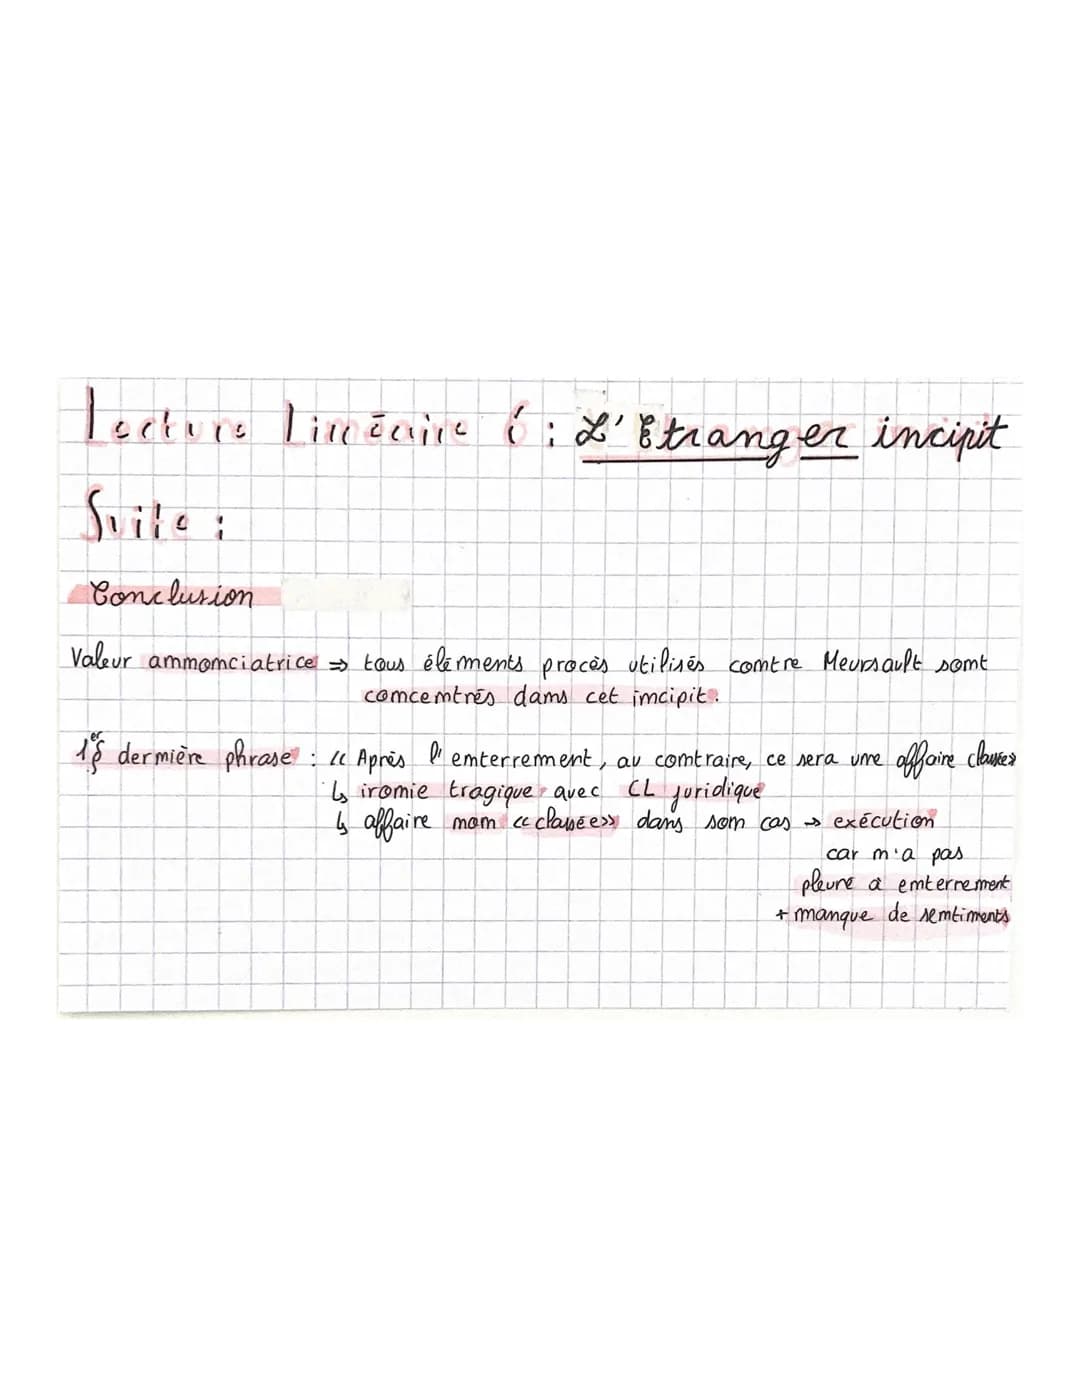 Lecture Linéaire 6 : L'Etranger incipit
Suite :
Conclusion
Valeur annonciatrice ⇒ tous éléments procès utilisés contre Meursault sont
concentrés dans cet incipit.
1er § dernière phrase : << Après l'enterrement, au contraire, ce sera une affaire classée>>
↳ ironie tragique avec CL juridique
↳ affaire non <<classée>> dans son cas → exécution
car n'a pas
pleuré à enterrement
+ manque de sentiments